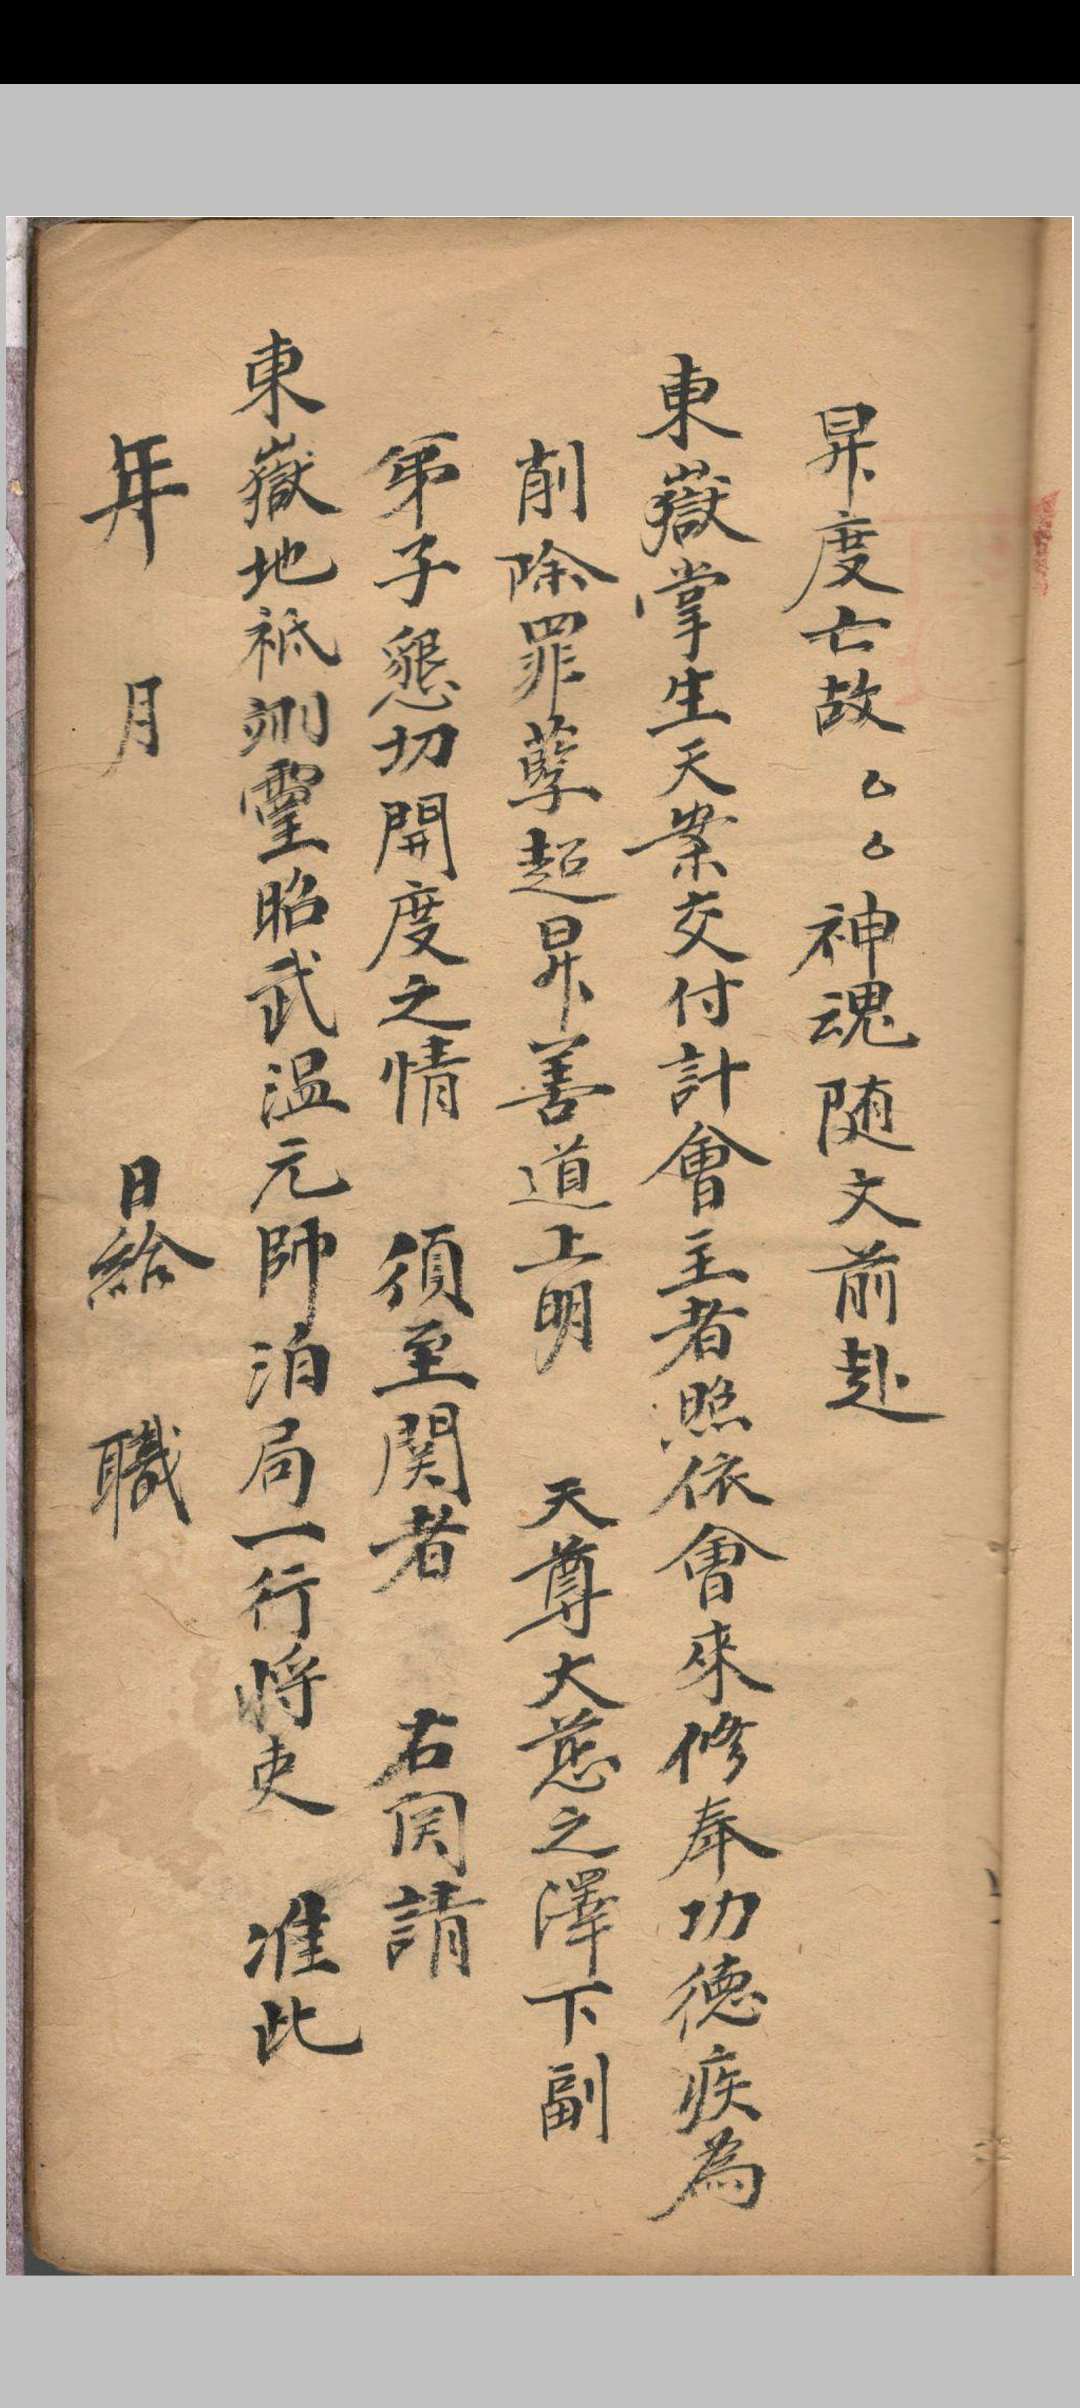 昇度亡故厶厶神魂随文前赴
東嶽掌生天案交付計會主者照依會來修奉功德疾為
削除罪孽超昇善道上明 天尊大慈之澤下副
弟子懇切開度之情 須至関者 右関請
東嶽地祇翊靈昭武温元帥洎局一行將吏 准此
年 月 日給 職